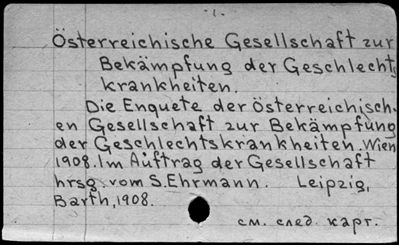 1.
Österreichische Gesellschaft zur
Bekämpfung der Geschlechts
krankheiten.
Die Enquete der österreichisch-
en Gesellschaft zur Bekämpfung
der Geschlechtskrankheiten. Wien
1908. Im Auftrag der Gesellschaft
hrsg. vom S. Ehrmann. Leipzig,
Barth, 1908.
см. след. карт.